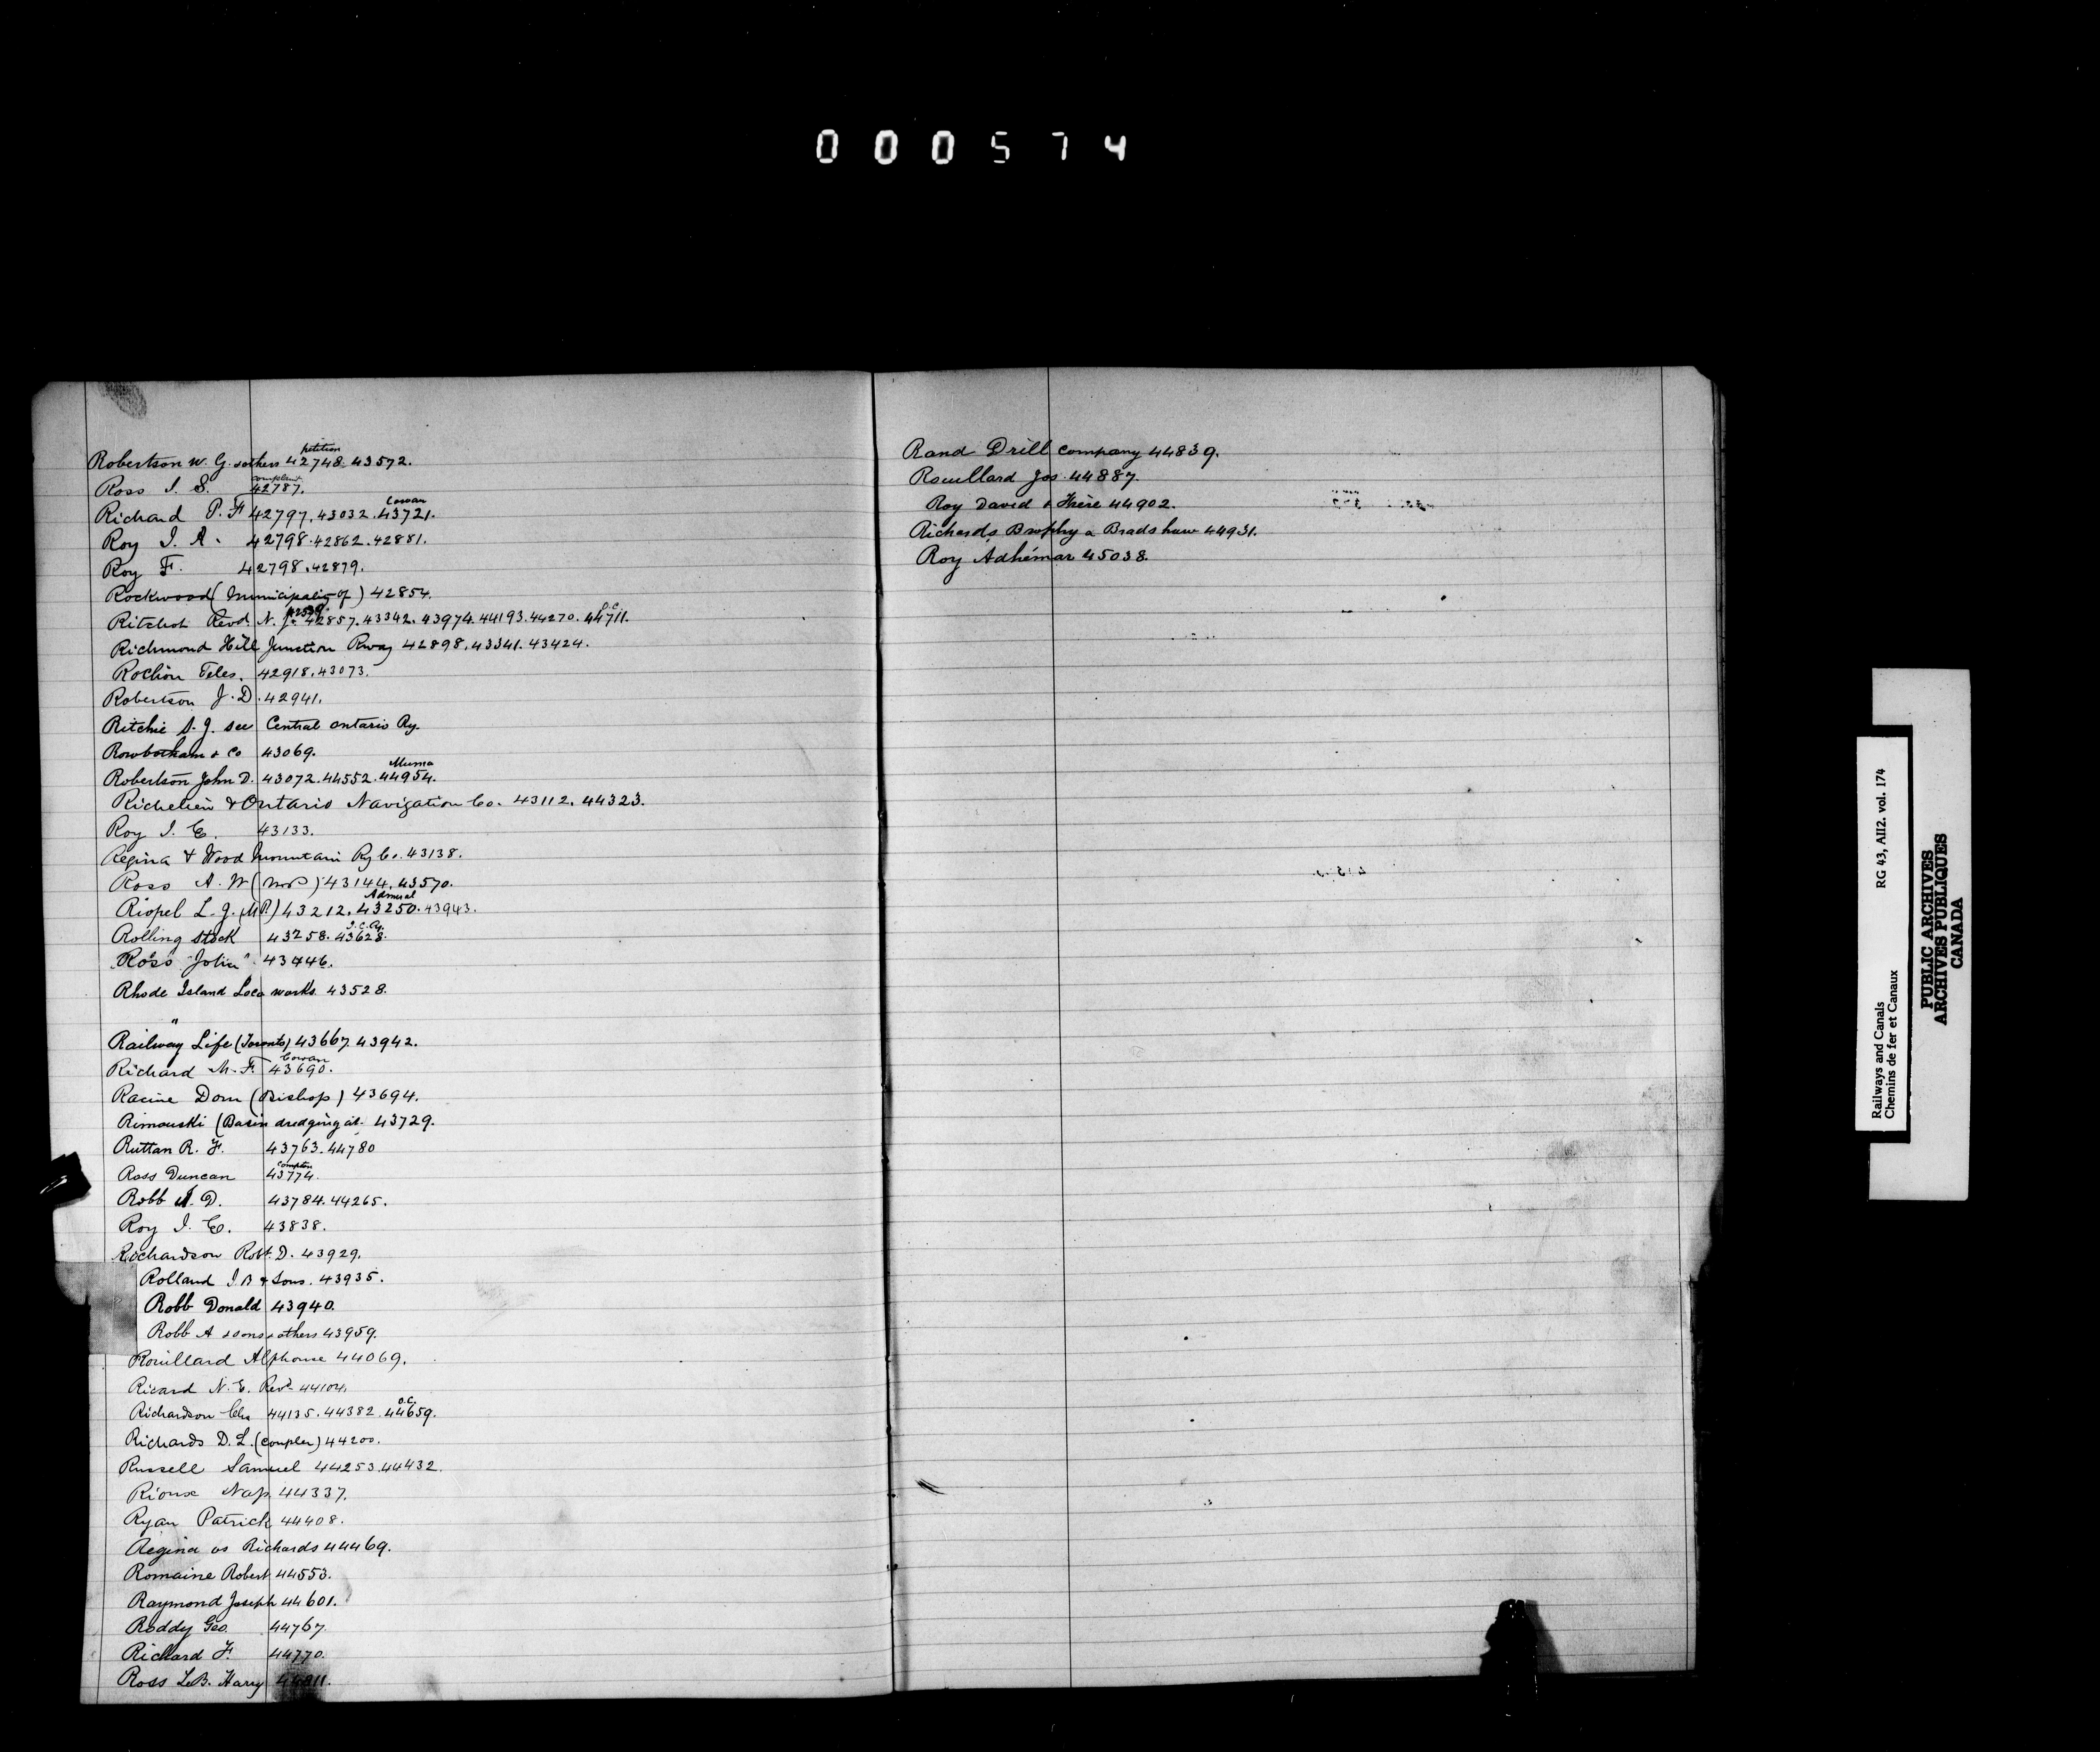 000574
petition
Robertson W. G. & others 42748. 43572.
complaint
Ross I. S. 42787.
Cowan
Richard P. F. 42797. 43032. 43721.
Roy I. A. 42798. 42862. 42881.
Roy F. 42798. 42879.
Rockwood (Municipality of) 42854.
O.C.
Ritchot Revd. N. J. 42857. 43342. 43974. 44193. 44270. 44711.
Richmond Hill Junction Rway 42898. 43341. 43424.
Rochon Teles. 42918. 43073.
Robertson J. D. 42941.
Ritchie S. J. see Central Ontario Ry.
Rowbotham & Co 43069.
Muma
Robertson John D. 43072. 44552. 44954.
Richelieu & Ontario Navigation Co. 43112. 44323.
Roy I. E. 43133.
Regina & Wood Mountain Ry Co. 43138.
Ross A. W (M.P) 43144. 43570.
Admiral
Riopel L. J. (M.P.) 43212. 43250. 43943.
I.C.Ry.
Rolling Stock 43258. 43628.
Ross "John" 43446.
Rhode Island Loco works. 43528.
"
Railway Life (Toronto) 43667. 43942.
Cowan
Richard M. F. 43690.
Racine Dom (Bishop) 43694.
Rimouski (Basin dredging at. 43729.
Ruttan R. F. 43763. 44780
Compton
Ross Duncan 43774.
Robb D. 43784. 44265.
Roy I. E. 43838.
Richardson Robt. D. 43929.
Rolland I B & Sons. 43935.
Robb Donald 43940.
Robb A & sons & others 43959.
Rouillard Alphonse 44069.
Ricard N. E. Revd. 44104.
O.C.
Richardson Chs 44135. 44382. 44659.
Richards D. L. (coupler) 44200.
Russell Samuel 44253. 44432.
Rioux Nap. 44337.
Ryan Patrick 44408.
Regina vs Richards 44469.
Romaine Robert 44553.
Raymond Joseph 44601.
Roddy Geo. 44767
Richard F. 44770.
Ross L.B. Harry 44811.
Rand Drill Company 44839.
Rouillard Jos. 44887.
Roy David & Frère 44902.
Richards, Brophy & Bradshaw 44931.
Roy Adhémar 45038.
Railways and Canals RG 43, AII2. vol. 174
Chemins de fer et Canaux
PUBLIC ARCHIVES
ARCHIVES PUBLIQUES
CANADA